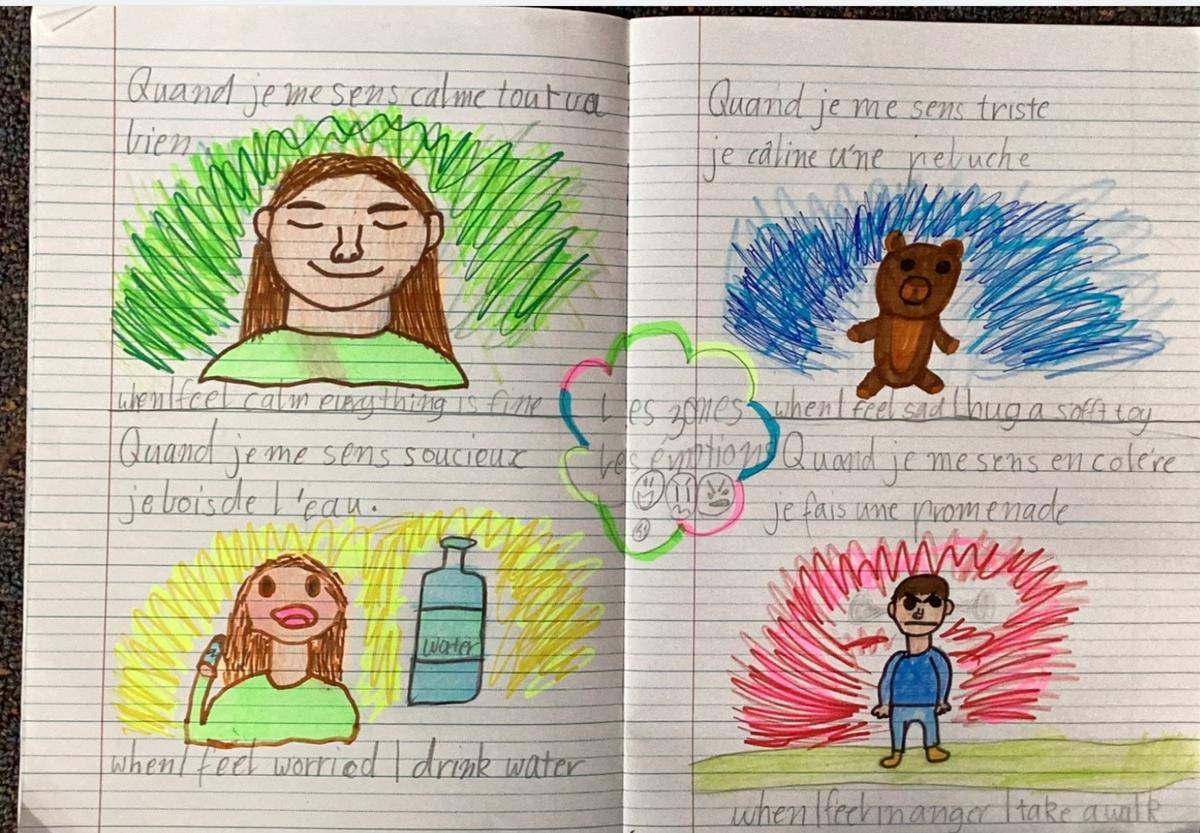 Quand je me sens calme tout va
bien
when I feel calm everything is fine
Quand je me sens soucieux
je bois de l'eau.
water
when I feel worried I drink water
Les zones
Les émotions
Quand je me sens triste
je câline u'ne peluche
when I feel sad I hug a sofft toy
Quand je me sens en colére
je fais une promenade
when I feel in anger I take a walk